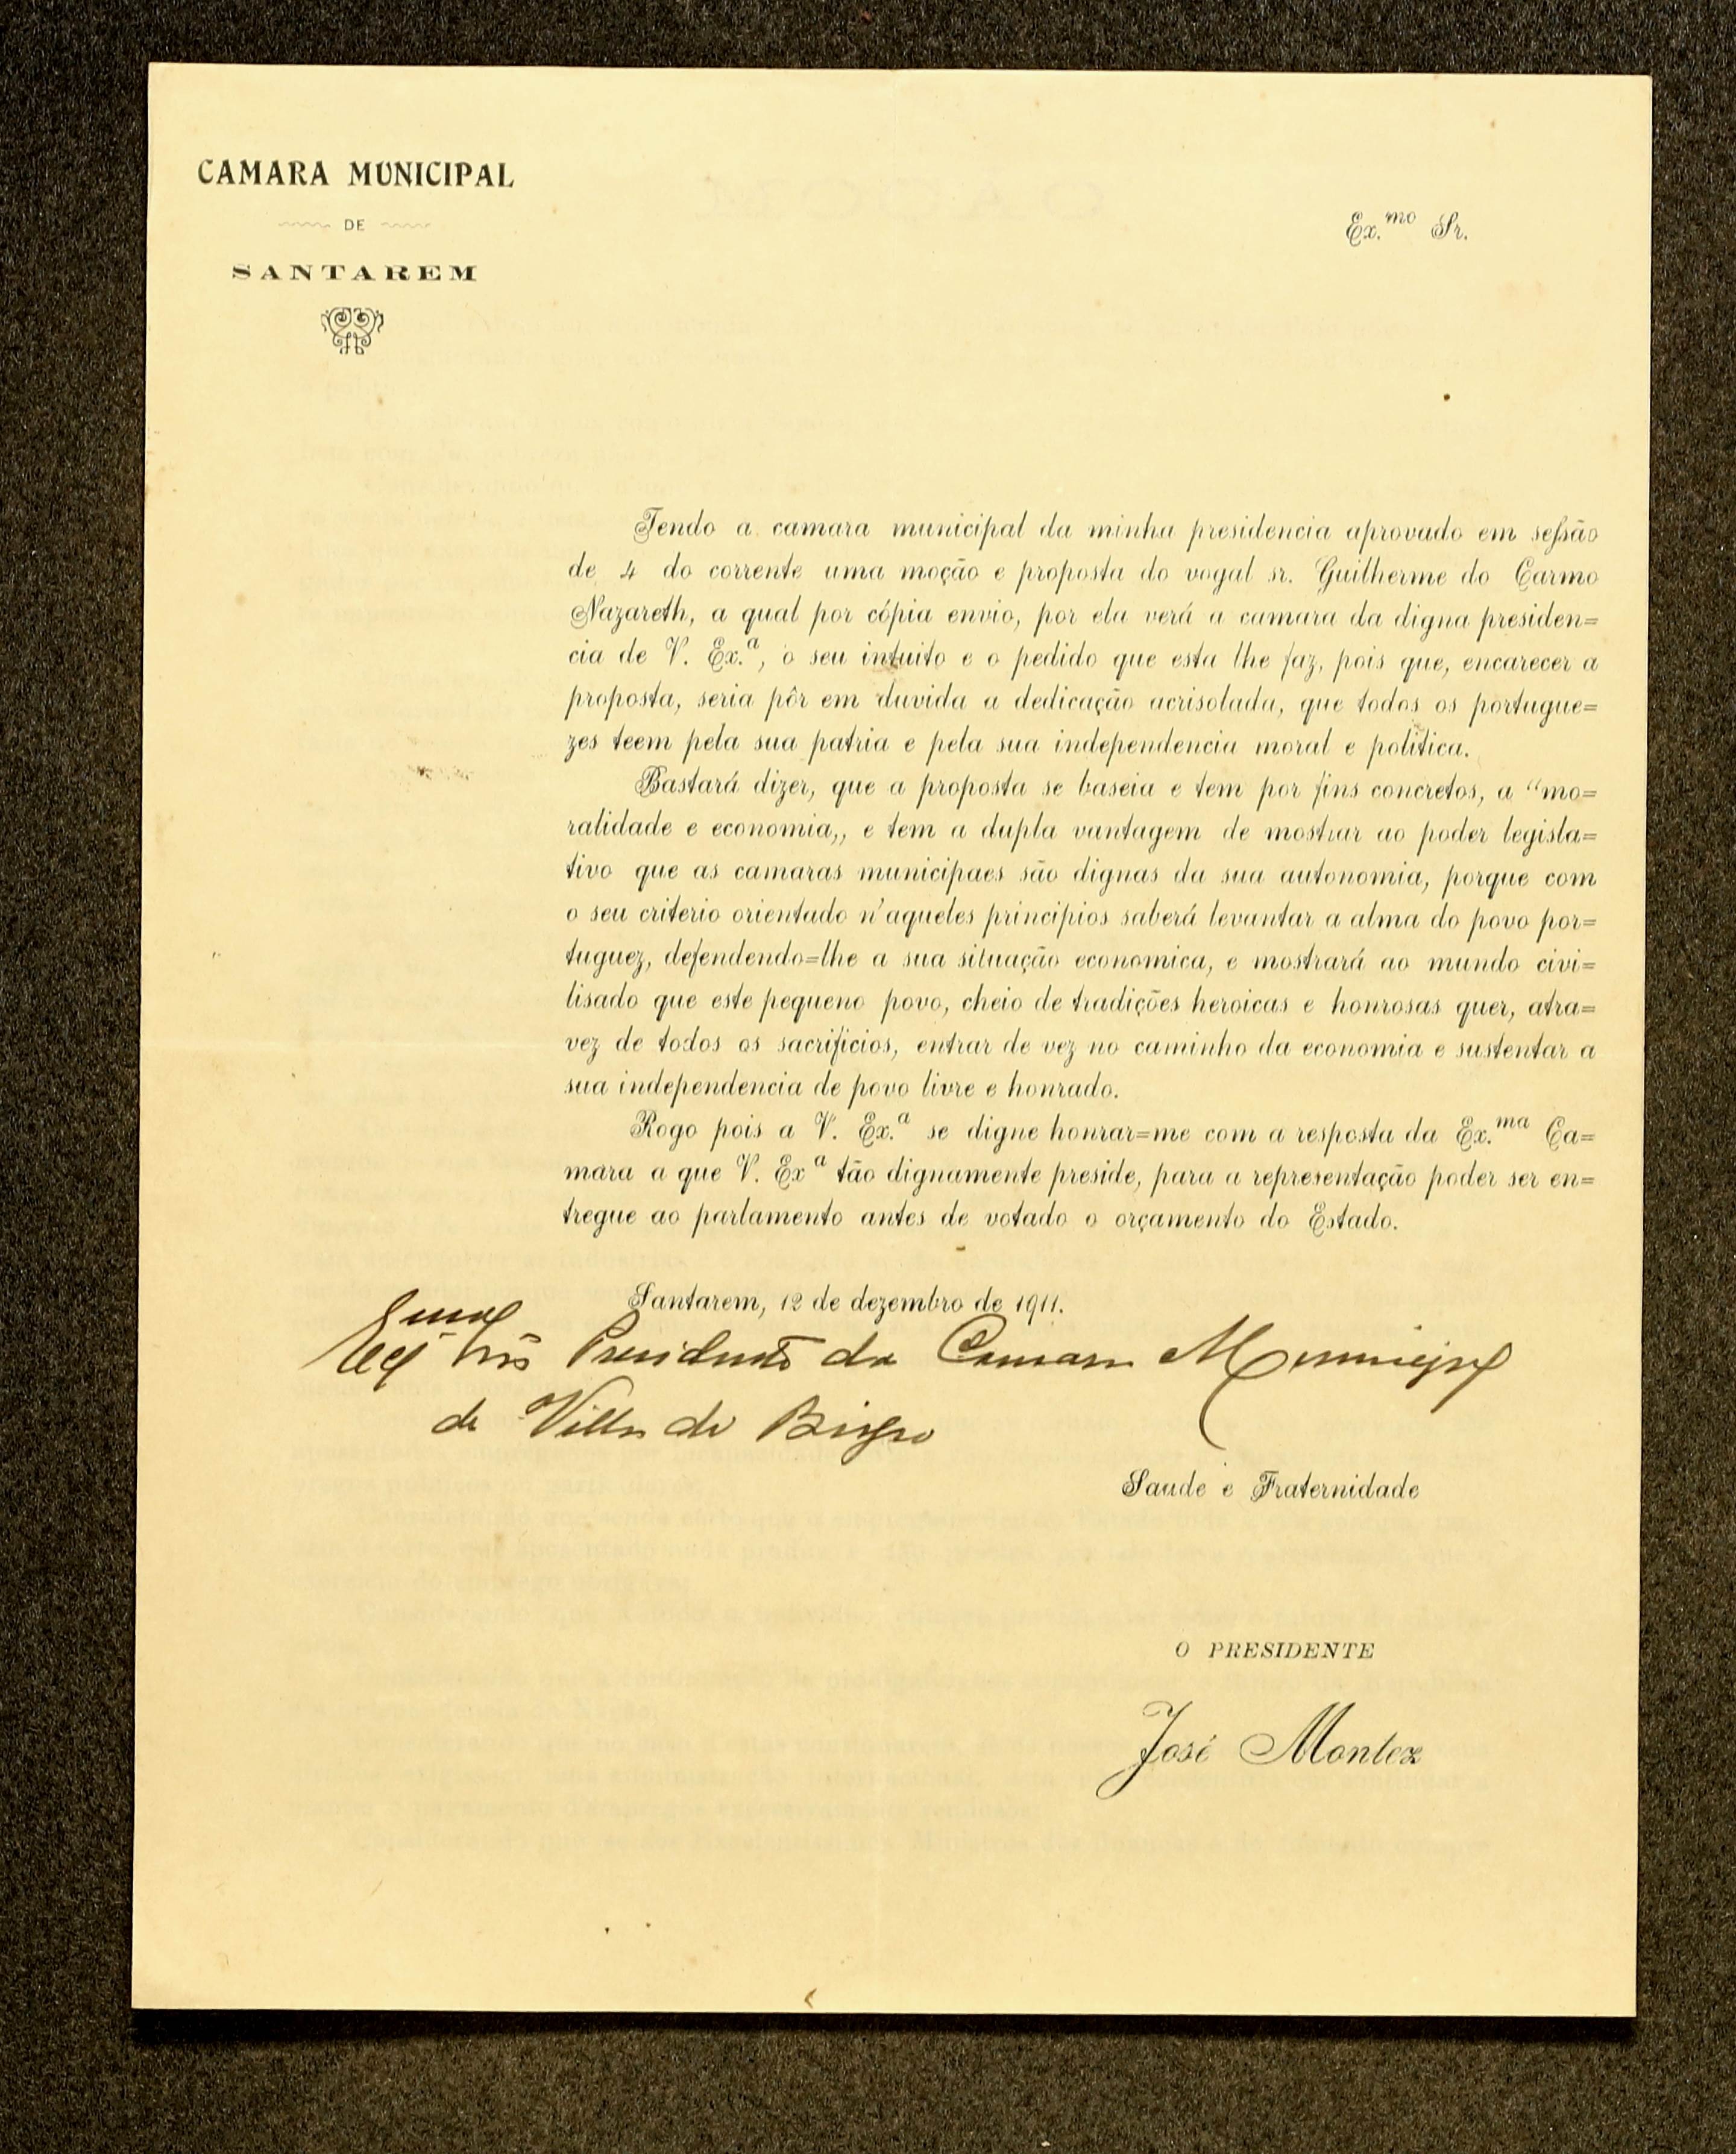 CAMARA MUNICIPAL
DE
SANTAREM
Ex.mo Sr.
Tendo a camara municipal da minha presidencia aprovado em sessão
de 4 do corrente uma moção e proposta do vogal sr. Guilherme do Carmo
Nazareth, a qual por cópia envio, por ela verá a camara da digna presiden=
cia de V. Ex.a, o seu intuito e o pedido que esta lhe faz, pois que, encarecer a
proposta, seria pôr em duvida a dedicação acrisolada, que todos os portugue=
zes teem pela sua patria e pela sua independencia moral e politica.
Bastará dizer, que a proposta se baseia e tem por fins concretos, a “mo=
ralidade e economia,, e tem a dupla vantagem de mostrar ao poder legisla=
tivo que as camaras municipaes são dignas da sua autonomia, porque com
o seu criterio orientado n'aqueles principios saberá levantar a alma do povo por=
tuguez, defendendo=lhe a sua situação economica, e mostrará ao mundo civi=
lisado que este pequeno povo, cheio de tradições heroicas e honrosas quer, atra=
vez de todos os sacrificios, entrar de vez no caminho da economia e sustentar a
sua independencia de povo livre e honrado.
Rogo pois a V. Ex.a se digne honrar=me com a resposta da Ex.ma Ca=
mara a que V. Ex a tão dignamente preside, para a representação poder ser en=
tregue ao parlamento antes de votado o orçamento do Estado.
Santarem, 12 de dezembro de 1911.
Presidente da Camara Municipal
de Villa do Bispo
Saude e Fraternidade
O PRESIDENTE
José Montez